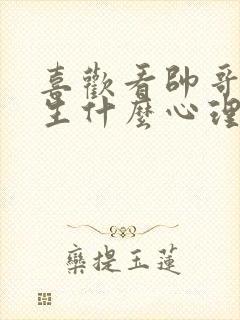 喜歡看帥哥
生什麼心理
欒提玉蓮